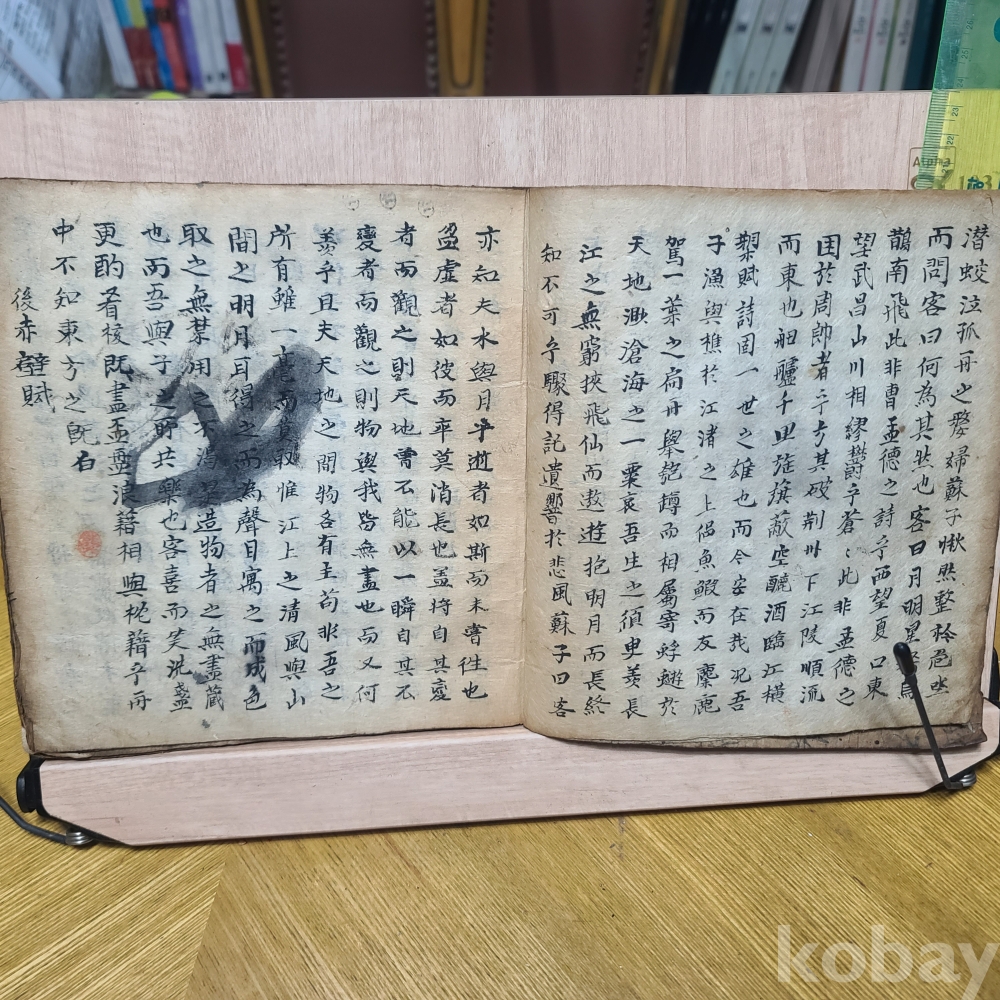 潜蛟泣孤舟之嫠婦蘇子愀然整衿危坐
而問客曰何為其然也客曰月明星烏
鵲南飛此非曹孟德之詩乎西望夏口東
望武昌山川相繆欝乎蒼〻此非孟德之
困於周帥者乎方其破荆州下江陵順流
而東也舳艫千里旌旗蔽空釃酒臨江横
槊賦詩固一世之雄也而今安在哉况吾
子漁與樵於江渚之上侶魚鰕而友麋鹿
駕一葉之扁舟舉匏樽而相屬寄蜉蝣於
天地渺滄海之一粟哀吾生之須臾羨長
江之無窮挾飛仙而遨遊抱明月而長終
知不可乎驟得託遺響於悲風蘇子曰客
亦知夫水與月乎逝者如斯而未嘗徃也
盈虛者如彼而卒莫消長也盖将自其變
者而觀之則天地曽不能以一瞬自其不
變者而觀之則物與我皆無盡也而又何
羨乎且夫天地之間物各有主苟非吾之
所有雖一毫而莫取惟江上之清風與山
間之明月耳得之而為聲目寓之而成色
取之無禁用之不渴是造物者之無盡蔵
也而吾與子之所共樂也客喜而笑洗盞
更酌肴核既盡盃盤浪籍相與枕藉乎舟
中不知東方之既白
後赤壁賦
Alpha
kobay